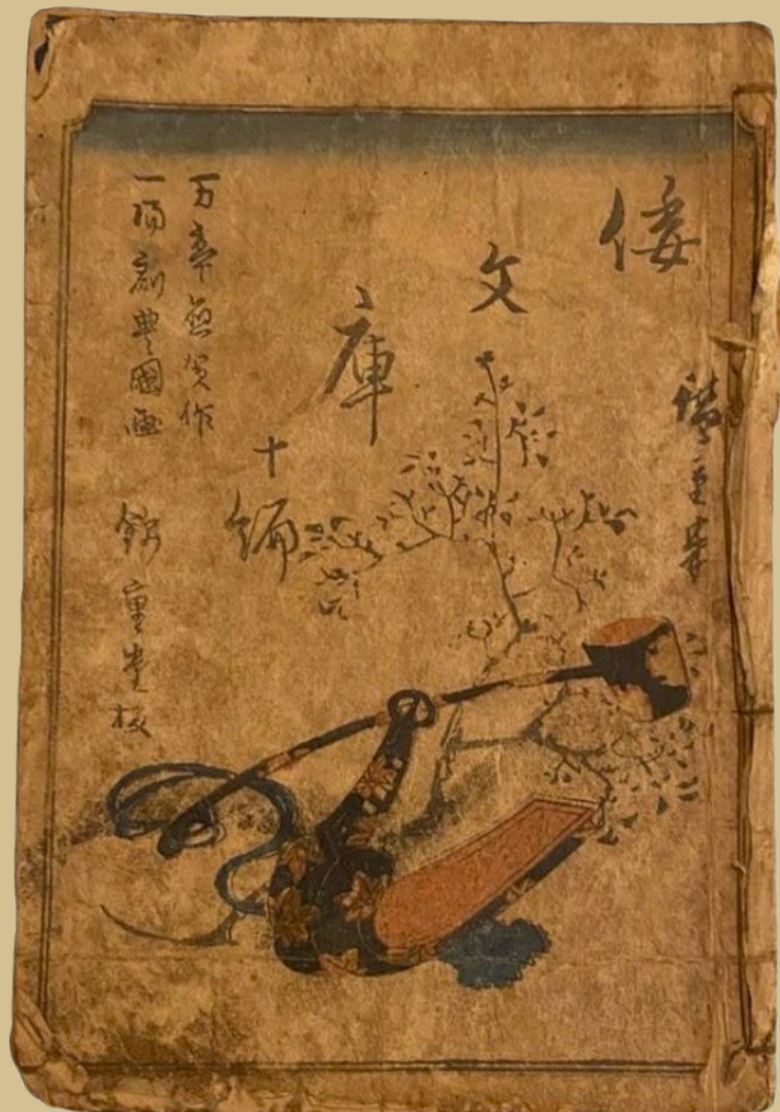 倭文庫
十編
万亭應賀作
一陽齋豊國画
錦重堂板